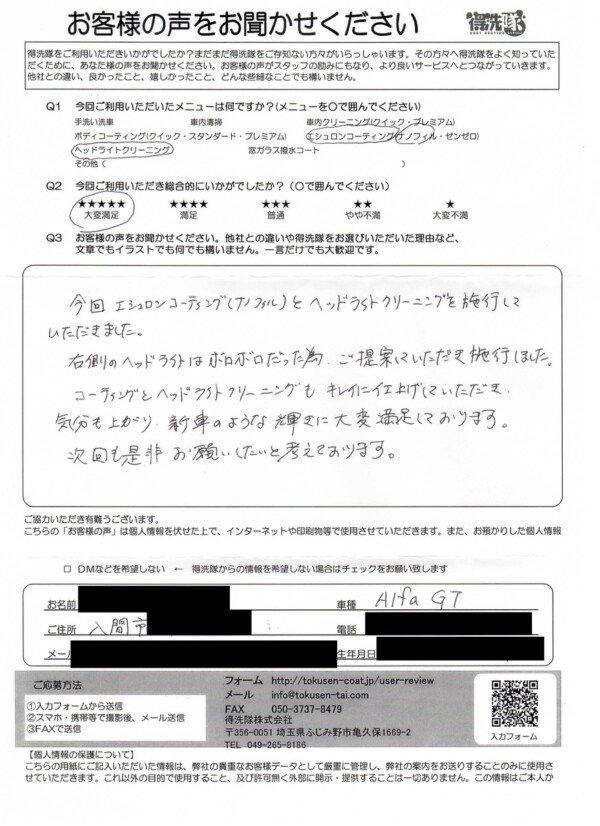 お客様の声をお聞かせください
得洗隊
得洗隊をご利用いただきいかがでしたか？まだまだ得洗隊をご存知ない方々がいらっしゃいます。その方々へ得洗隊をよく知っていた
だくために、あなた様の声をお聞かせください。お客様の声がスタッフの励みにもなり、より良いサービスへとつながっていきます。
他社との違い、良かったこと、嬉しかったこと、どんな些細なことでも構いません。
Q1 今回ご利用いただいたメニューは何ですか？(メニューを○で囲んでください)
手洗い洗車 車内清掃 車内クリーニング(クイック・プレミアム)
ボディコーティング(クイック・スタンダード・プレミアム) エシュロンコーティング(ナノフィル・ゼンゼロ)
ヘッドライトクリーニング 窓ガラス撥水コート
その他( )
Q2 今回ご利用いただき総合的にいかがでしたか？(○で囲んでください)
★★★★★ ★★★★ ★★★ ★★ ★
大変満足 満足 普通 やや不満 大変不満
Q3 お客様の声をお聞かせください。他社との違いや得洗隊をお選びいただいた理由など、
文章でもイラストでも何でも構いません。一言だけでも大歓迎です。
今回エシュロンコーティング(ナノフィル)とヘッドライトクリーニングを施行して
いただきました。
右側のヘッドライトはボロボロだった為、ご提案していただき施行しました。
コーティングとヘッドライトクリーニングもキレイに仕上げしていただき、
気分も上がり、新車のような輝きに大変満足しております。
次回も是非お願いしたいと考えております。
ご協力いただき有難うございます。
こちらの「お客様の声」は個人情報を伏せた上で、インターネットや印刷物等で使用させていただきます。また、お預かりした個人情報
□ DMなどを希望しない ← 得洗隊からの情報を希望しない場合はチェックをお願い致します
お名前 車種 Alfa GT
ご住所 入間市 電話
メール 生年月日
ご応募方法
①入力フォームから送信
②スマホ・携帯等で撮影後、メール送信
③FAXで送信
フォーム http://tokusen-coat.jp/user-review
メール info@tokusen-tai.com
FAX 050-3737-8479
得洗隊株式会社
〒356-0051 埼玉県ふじみ野市亀久保1669-2
TEL 049-265-8186
入力フォーム
【個人情報の保護について】
こちらの用紙にご記入いただいた情報は、弊社の貴重なお客様データとして厳重に管理し、弊社の案内をお送りすることのみに使用さ
せていただきます。これ以外の目的で使用すること、及び許可無く外部に開示・提供することは一切ありません。この情報はご本人か